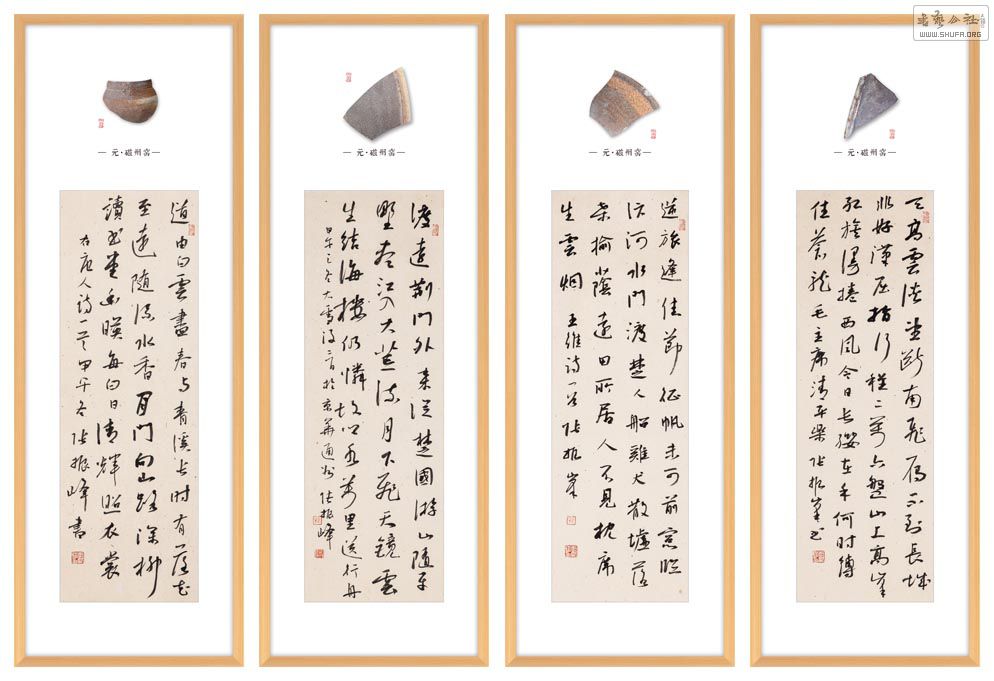 書藝公社
WWW.SHUFA.ORG
元·磁州窑
道由白雲盡春与青溪长时有落花
至遠随流水香閒門向山路深柳
讀书堂幽暎每白日清輝照衣裳
右唐人诗一首甲午冬张振峰書
元·磁州窑
渡遠荆門外来從楚國游山随平
野尽江入大荒流月下飛天鏡雲
生結海楼仍憐故乡水萬里送行舟
甲午之冬大雪後三日於京華通州张振峰
元·磁州窑
道旅逢佳節征帆未可前窓臨
汴河水門渡楚人船雞犬散墟落
桑榆蔭遠田所居人不見枕席
生雲烟 王維诗一首 张振峰
元·磁州窑
天高雲淡望断南飛雁不到長城
非好漢屈指行程二萬六盤山上高峰
红旗漫捲西风今日长缨在手何时缚
住蒼龙毛主席清平樂张振峰书